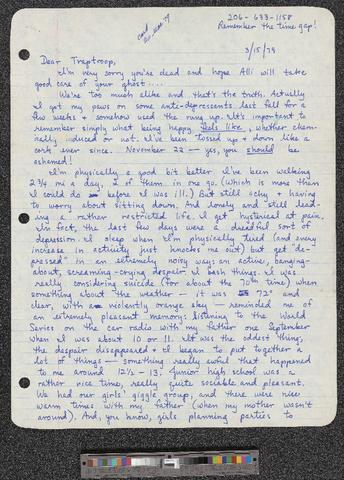 206-633-1158
Remember the time gap!
card
20 Mar 79
3/15/79
Dear Treptroop,
I'm very sorry you're dead and hope Alli will take
good care of your ghost....
We're too much alike and that's the truth. Actually
I got my paws on some anti-depressents last fall for a
few weeks & somehow used the rung up. It's important to
remember simply what being happy feels like, whether chem-
ically induced or not. I've been tossed up & down like a
cork ever since. November 22 — yes, you should be
ashamed!
I'm physically a good bit better. I've been walking
2 3/4 mi a day, 2 of them in one go. (Which is more than
I could do before I was ill.) But still achy & having
to worry about sitting down. And lonely and still lead-
ing a rather restricted life. I get hysterical at pain.
In fact, the last few days were a dreadful sort of
depression. I sleep when I'm physically tired (and every
increase in activity just knocks me out) but get "de-
pressed" in an extremely noisy way: an active, banging-
about, screaming-crying despair. I bash things. I was
really considering suicide (for about the 70th time) when
something about the weather — it was 72° and
clear, with a violently orange sky — reminded me of
an extremely pleasant memory: listening to the World
Series on the car radio with my father one September
when I was about 10 or 11. It was the oddest thing,
the despair disappeared & I began to put together a
lot of things — something really awful that happened
to me around 12½ - 13. Junior high school was a
rather nice time, really quite sociable and pleasant.
We had our girls' giggle group, and there were nice
warm times with my father (when my mother wasn't
around). And, you know, girls planning parties to